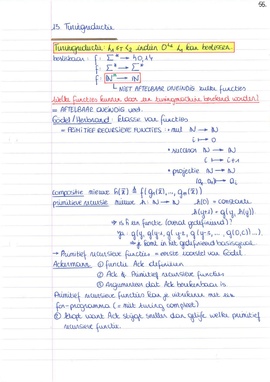 56.
15 Turingreductie
Turingreductie: L₁ ≤T L₂ indien O^L₂ L₁ kan beslissen
beslisbaar: f: Σ* → {0,1}
f: Σ* → Σ*
f: ℕ^m → ℕ
NIET AFTELBAAR ONEINDIG zulke functies
Welke functies kunnen door een turingmachine berekend worden?
= AFTELBAAR ONEINDIG veel.
Gödel/Herbrand: klasse van functies
= PRIMITIEF RECURSIEVE FUNCTIES: • nul ℕ → ℕ
i ↦ 0
• successor ℕ → ℕ
i ↦ i+1
• projectie ℕⁿ → ℕ
compositie nieuwe f(x̄) ≜ f(g₁(x̄), ..., gₘ(x̄))
primitieve recursie nieuwe h: ℕ → ℕ h(0) = constante
h(y+1) = g(y, h(y))
⇒ is h een functie (overal gedefinieerd)?
→ Primitief recursieve functies = eerste voorstel van Gödel
Ackermann ① functie Ack definiëren
② Ack ∉ Primitief recursieve functies
③ Argumenten dat Ack berekenbaar is.
Primitief recursieve functies kan je uitrekenen met een
for-programma (≠ niet turing compleet)
② klopt want Ack stijgt sneller dan gelijk welke primitief
recursieve functie.